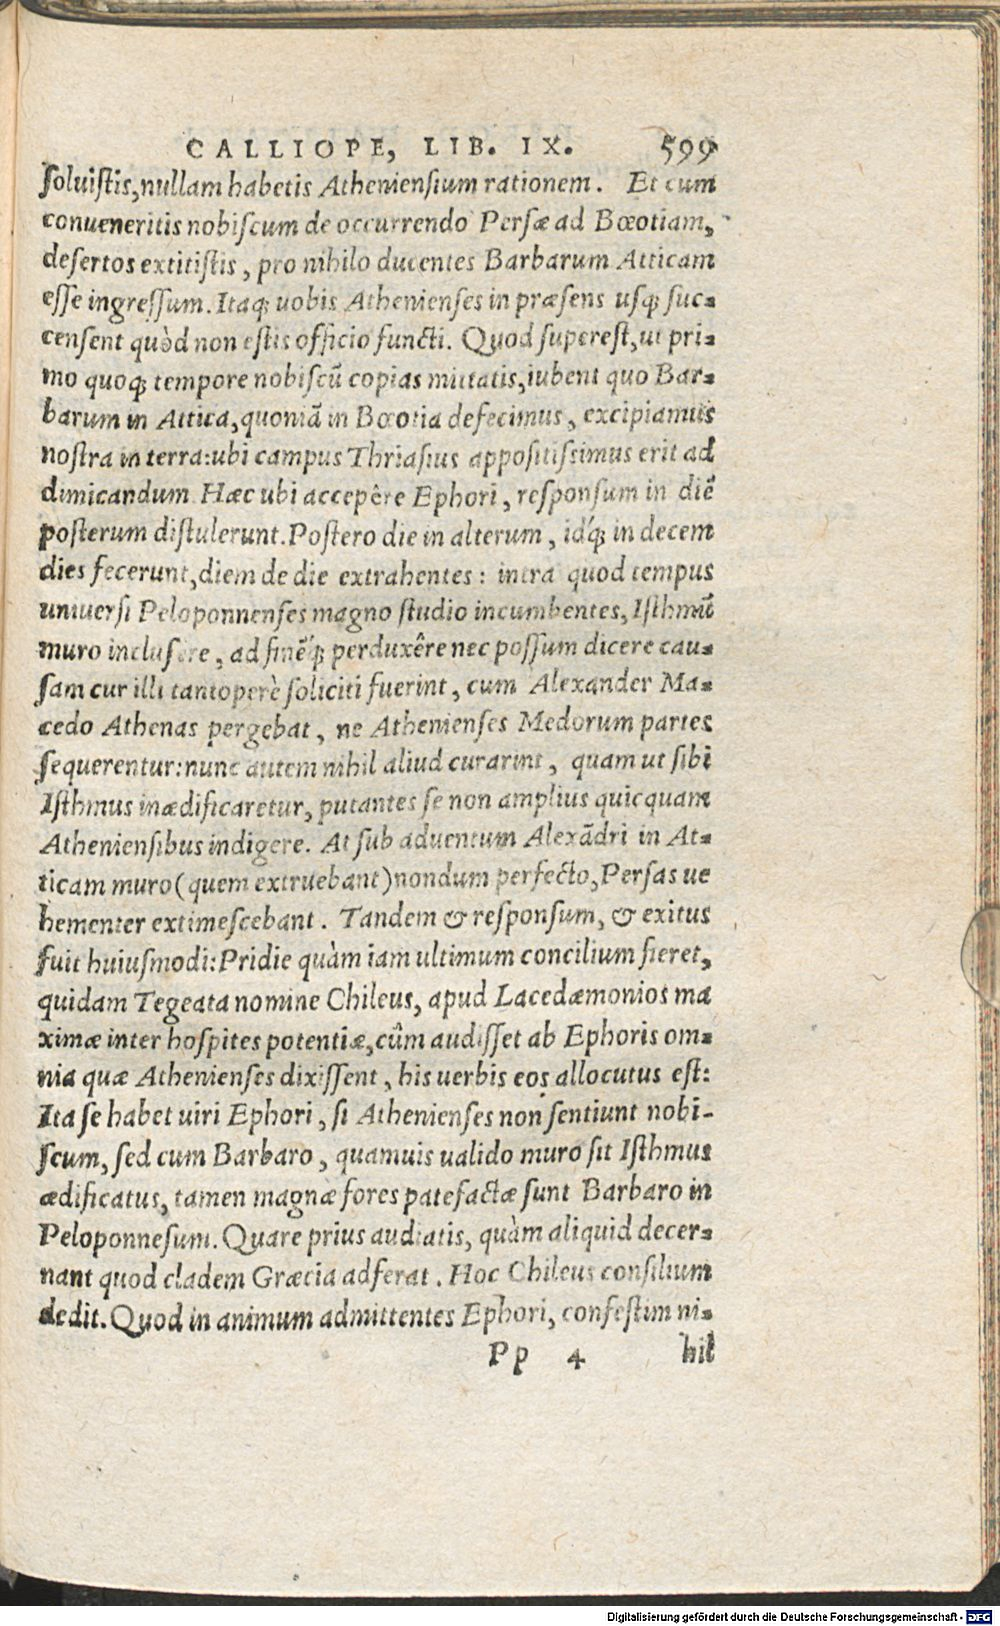 CALLIOPE, LIB. IX. 599
ſoluiſtis, nullam habetis Athenienſium rationem. Et cum
conueneritis nobiſcum de occurrendo Perſæ ad Bœotiam,
deſertos extitiſtis, pro nihilo ducentes Barbarum Atticam
eſſe ingreſſum. Itaq; uobis Athenienſes in præſens uſq; ſuc-
cenſent quòd non eſtis officio functi. Quod ſupereſt, ut pri-
mo quoq; tempore nobiſcū copias mittatis, iubent quo Bar-
barum in Attica, quoniā in Bœotia defecimus, excipiamus
noſtra in terra: ubi campus Thriaſius appoſitiſsimus erit ad
dimicandum. Hæc ubi accepêre Ephori, reſponſum in diē
poſterum diſtulerunt. Poſtero die in alterum, idq́; in decem
dies fecerunt, diem de die extrahentes: intra quod tempus
uniuerſi Peloponnenſes magno ſtudio incumbentes, Iſthmū
muro incluſere, ad finēq́; perduxêre nec poſſum dicere cau-
ſam cur illi tantoperè ſoliciti fuerint, cum Alexander Ma-
cedo Athenas pergebat, ne Athenienſes Medorum partes
ſequerentur: nunc autem nihil aliud curarint, quam ut ſibi
Iſthmus inædificaretur, putantes ſe non amplius quicquam
Athenienſibus indigere. At ſub aduentum Alexādri in At-
ticam muro (quem extruebant) nondum perfecto, Perſas ue
hementer extimeſcebant. Tandem & reſponſum, & exitus
fuit huiuſmodi: Pridie quàm iam ultimum concilium fieret,
quidam Tegeata nomine Chileus, apud Lacedæmonios ma
ximæ inter hoſpites potentiæ, cûm audiſſet ab Ephoris om-
nia quæ Athenienſes dixiſſent, his uerbis eos allocutus eſt:
Ita ſe habet uiri Ephori, ſi Athenienſes non ſentiunt nobi-
ſcum, ſed cum Barbaro, quamuis ualido muro ſit Iſthmus
ædificatus, tamen magnæ fores patefactæ ſunt Barbaro in
Peloponneſum. Quare prius audiatis, quàm aliquid decer-
nant quod cladem Græcia adferat. Hoc Chileus conſilium
dedit. Quod in animum admittentes Ephori, confeſtim ni-
Pp 4 hil
Digitalisierung gefördert durch die Deutsche Forschungsgemeinschaft - DFG